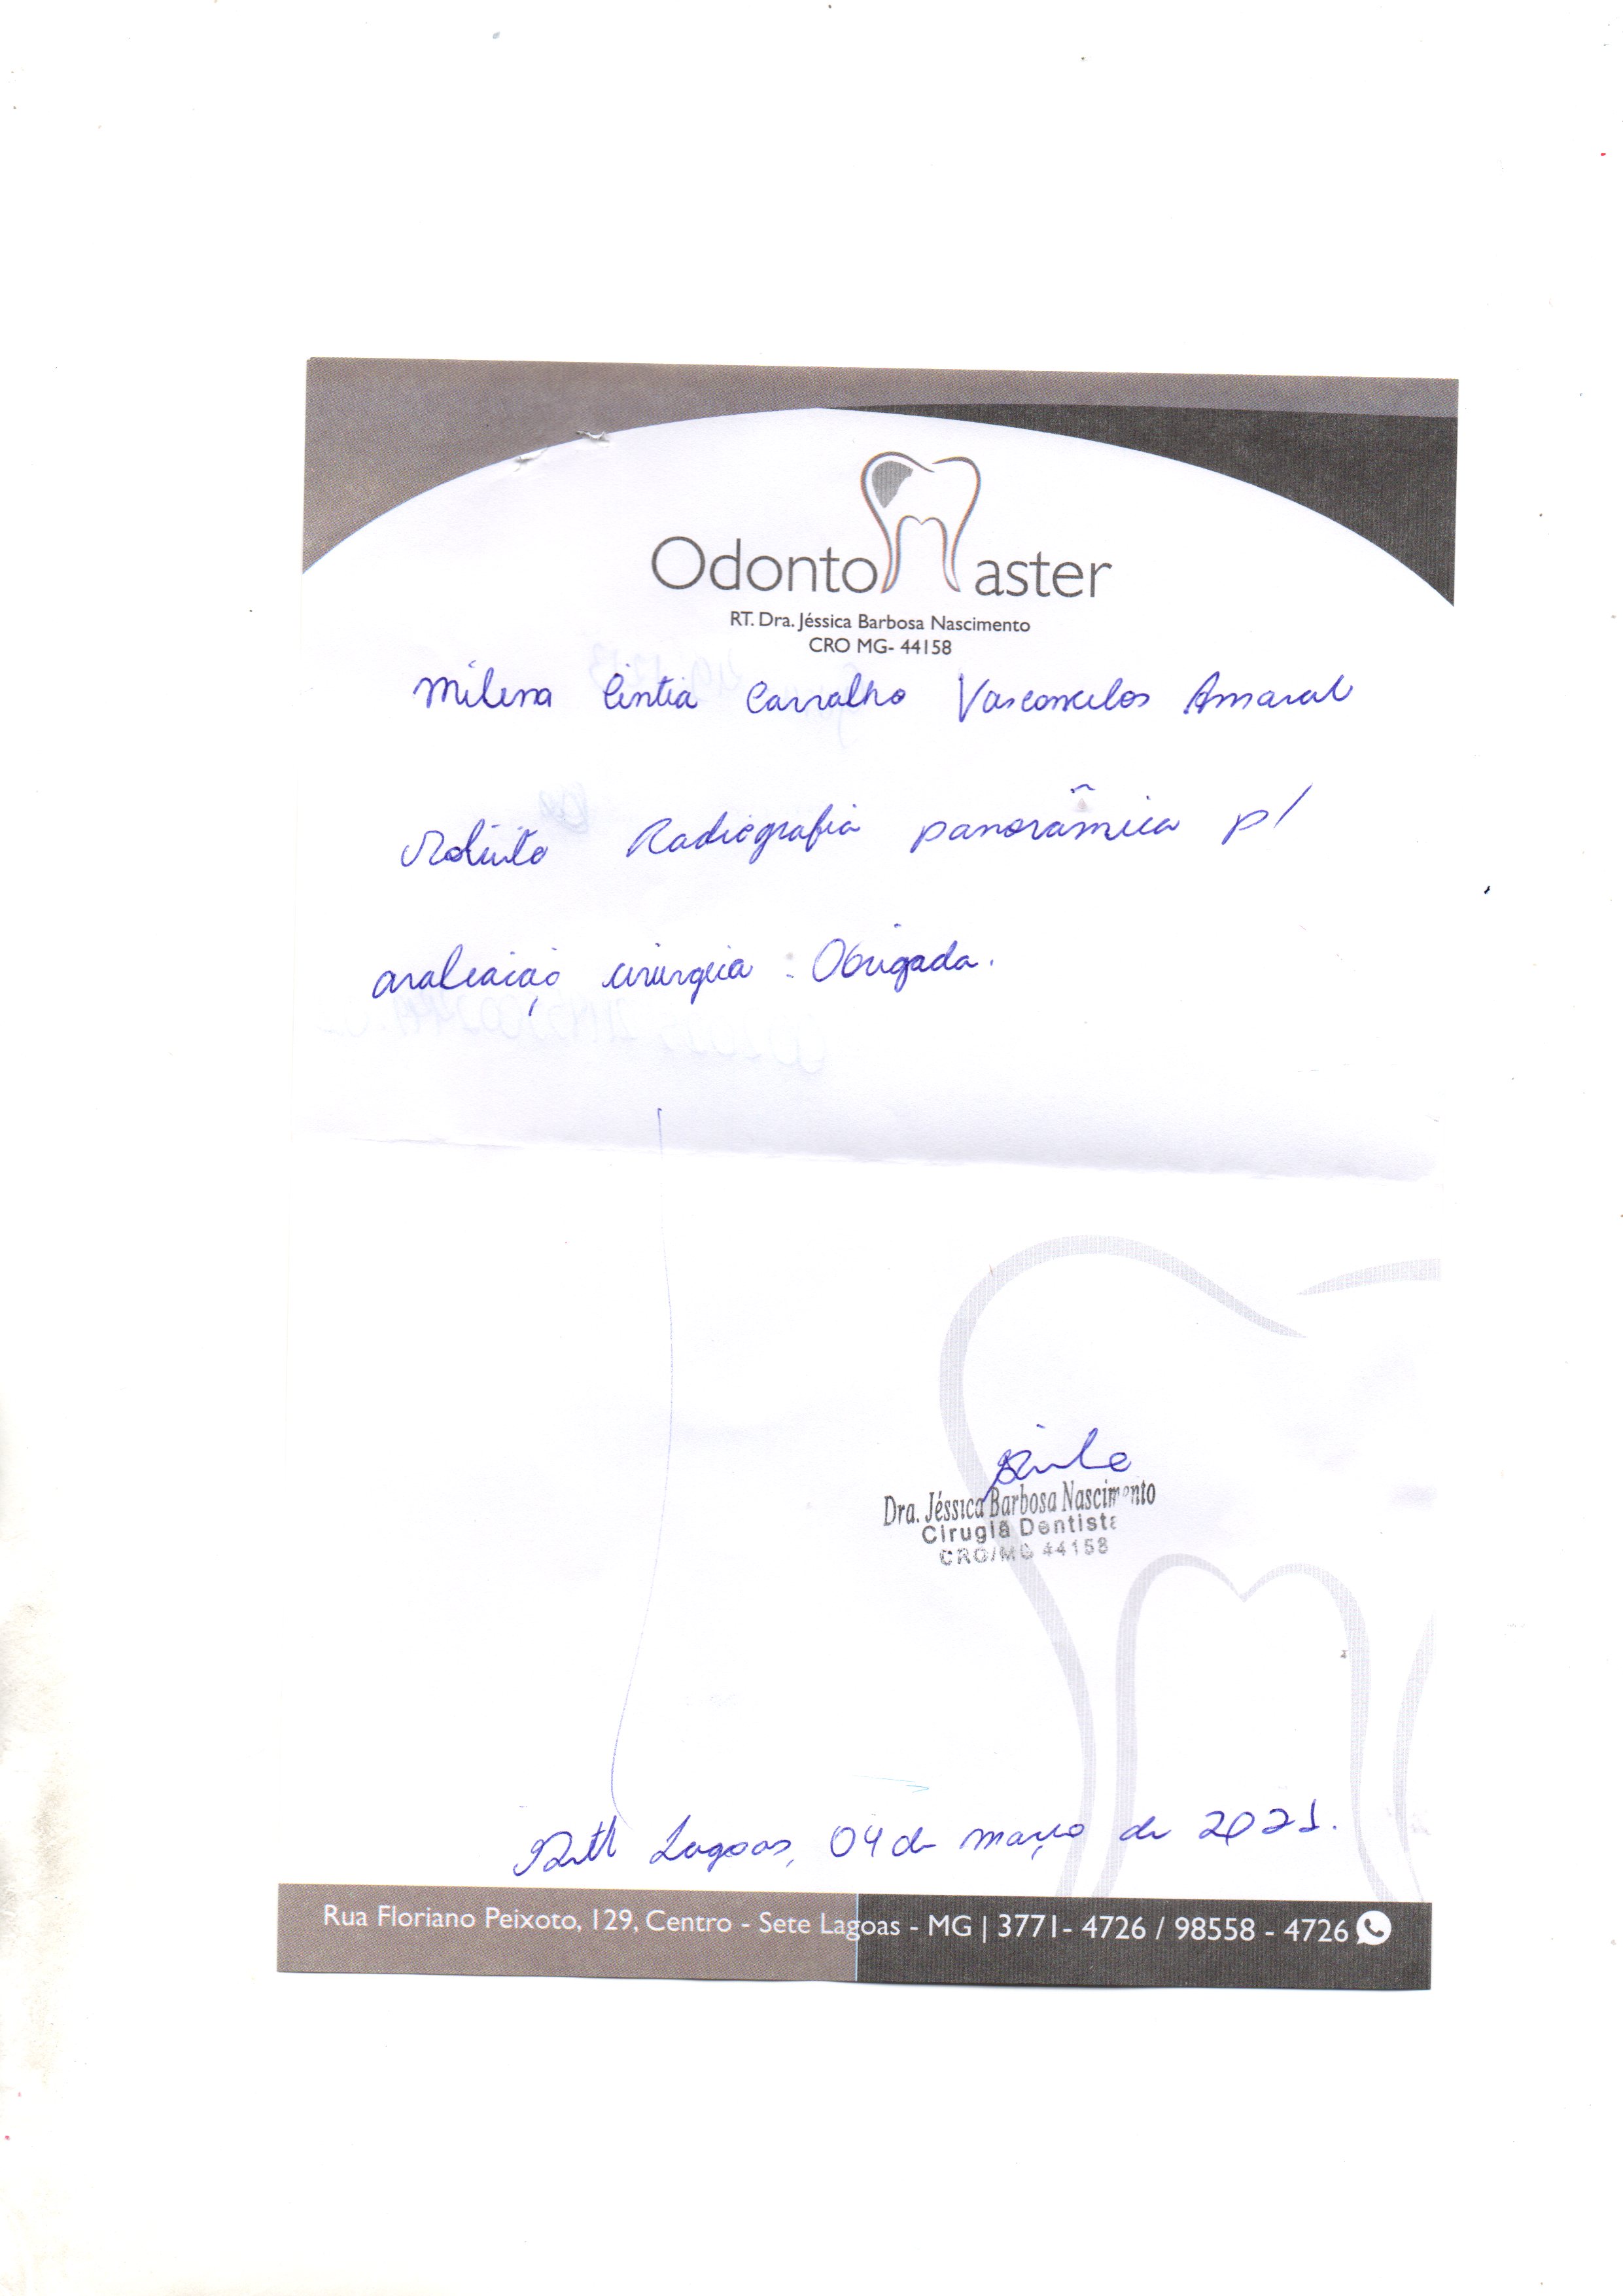 Odonto Master
RT. Dra. Jéssica Barbosa Nascimento
CRO MG- 44158
Milena Cintia Carvalho Vasconcelos Amaral
Solicito Radiografia panorâmica p/
avaliação cirurgica. Obrigada.
Dra. Jéssica Barbosa Nascimento
Cirugiã Dentista
CRO/MG 44158
Sete Lagoas, 04 de março de 2021.
Rua Floriano Peixoto, 129, Centro - Sete Lagoas - MG | 3771- 4726 / 98558 - 4726